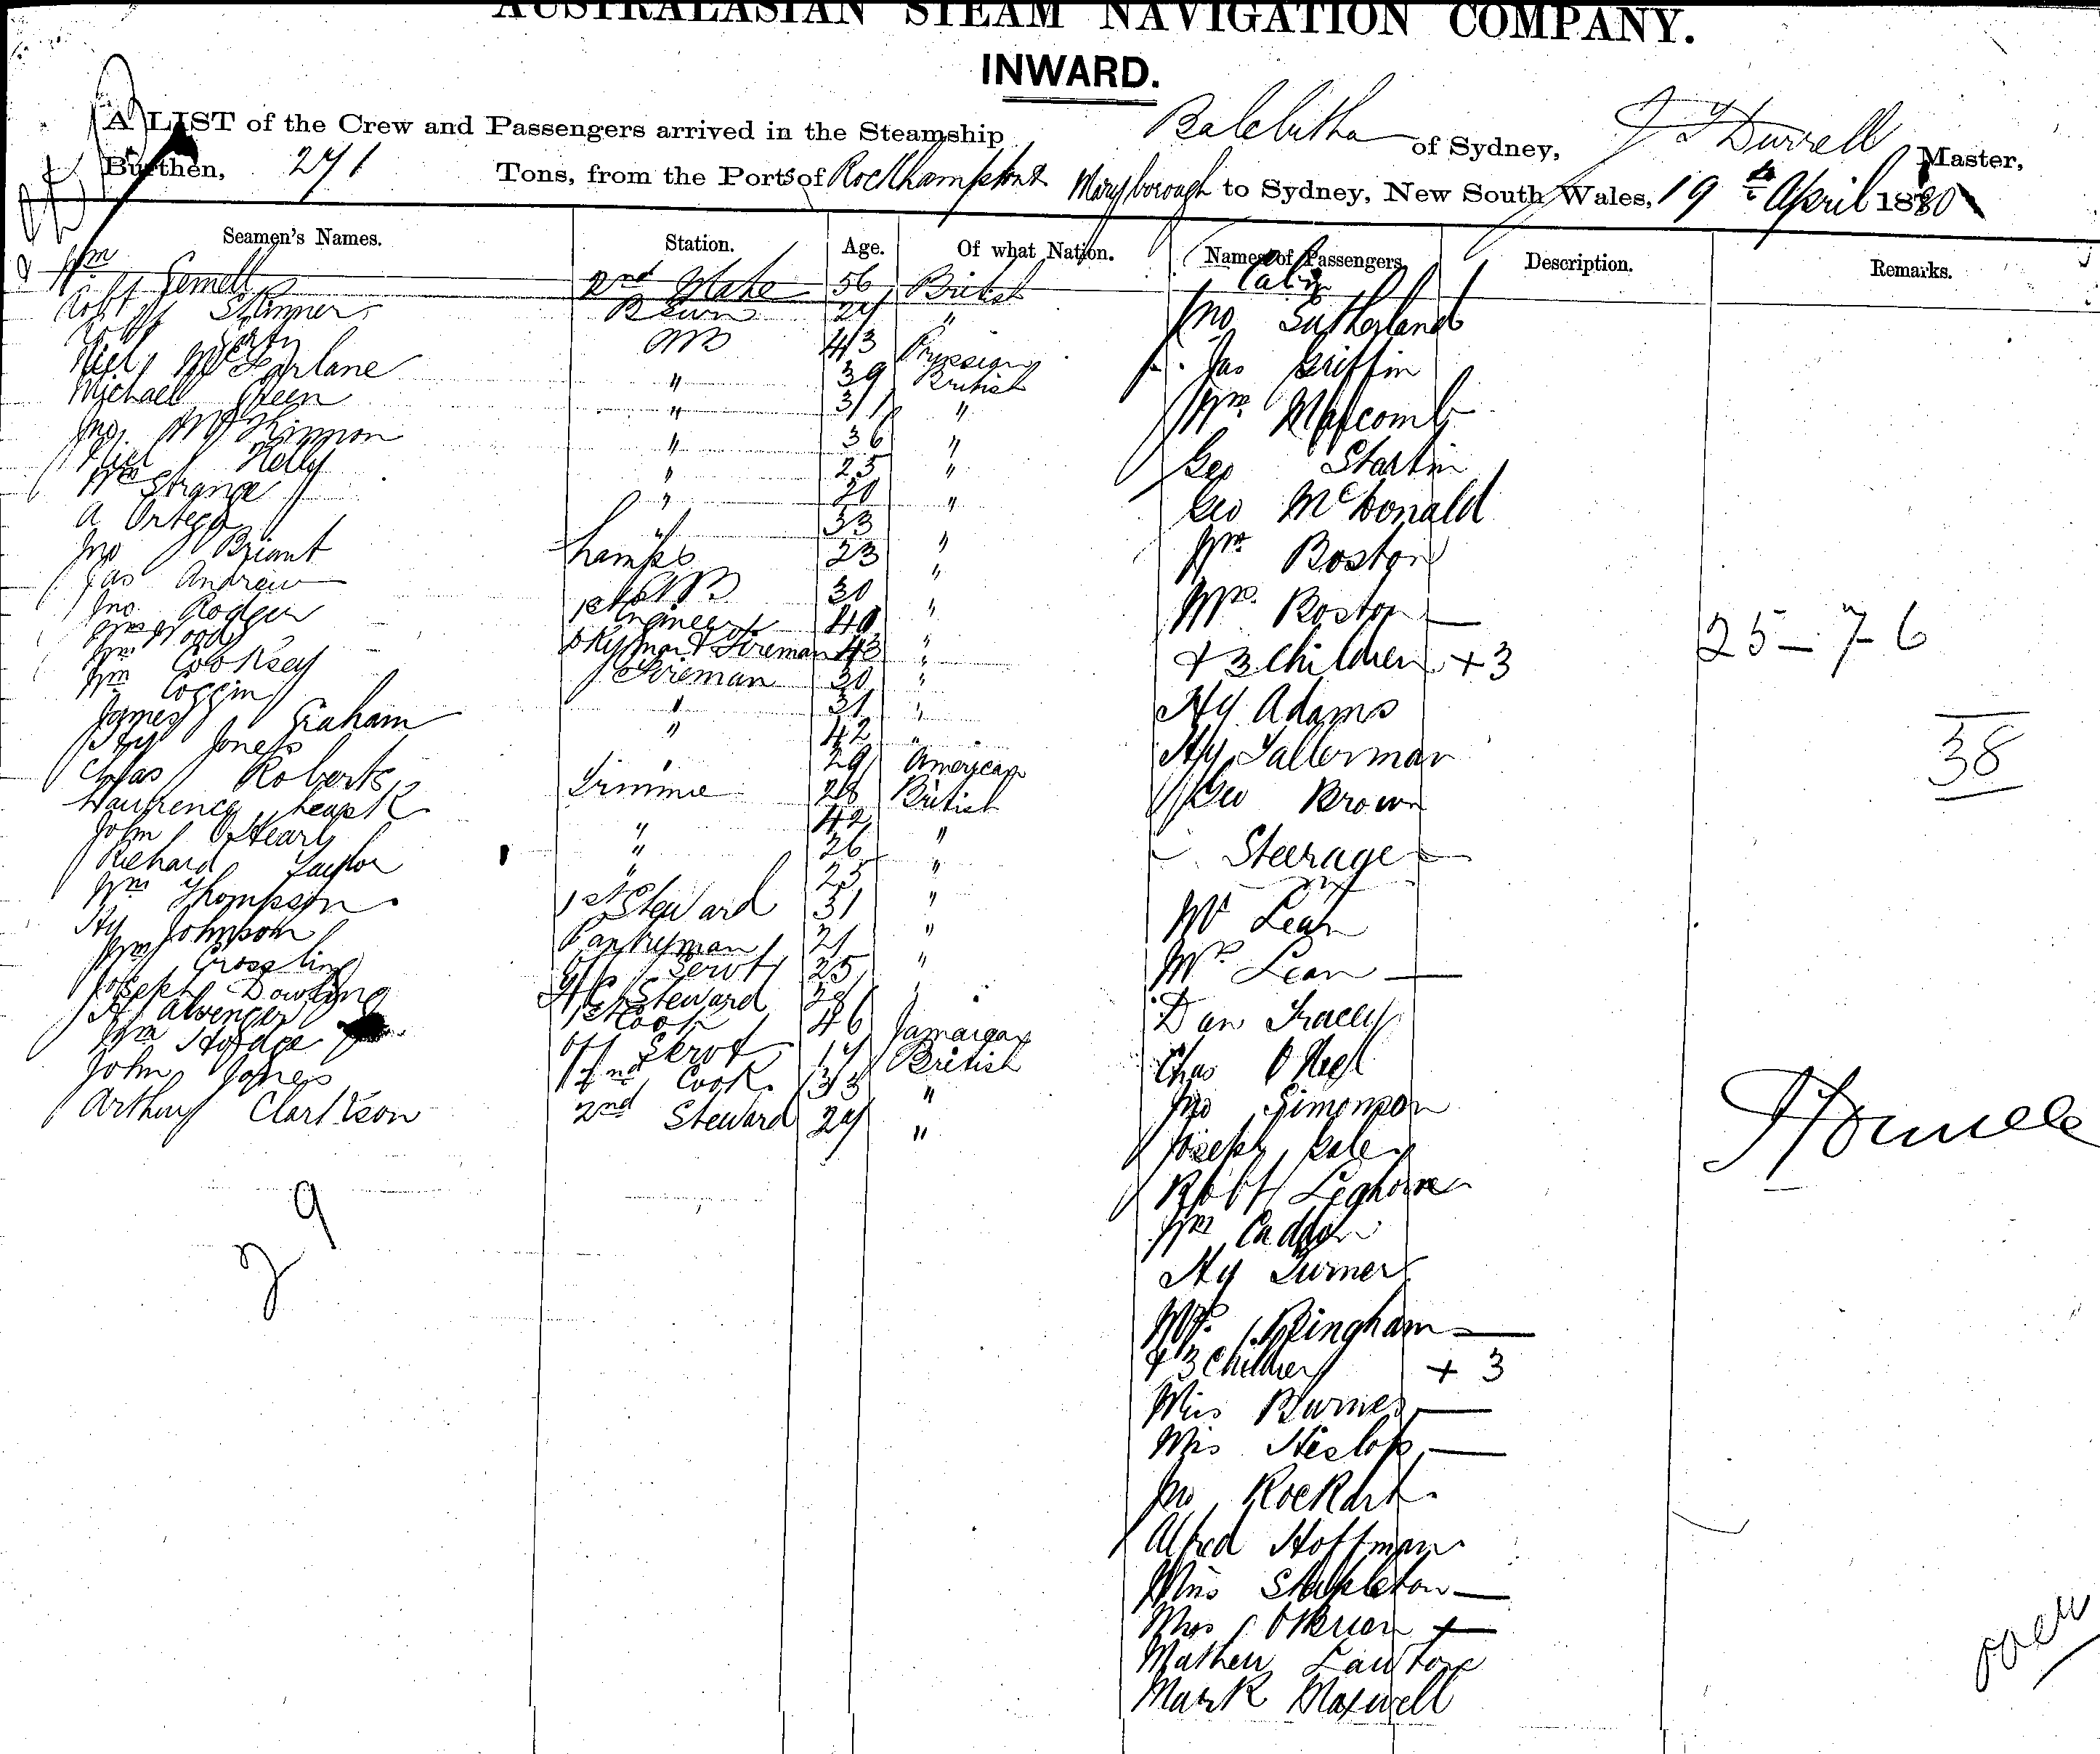 AUSTRALASIAN STEAM NAVIGATION COMPANY.
INWARD.
A LIST of the Crew and Passengers arrived in the Steamship Balclutha of Sydney, Master,
Burthen, 271 Tons, from the Ports of Rockhampton & Maryborough to Sydney, New South Wales, 19th April 1880
Seamen's Names. Station. Age. Of what Nation. Names of Passengers Description. Remarks.
Cabin
Wm Gemell 2nd Mate 56 British
Robt Skinner 27 "
AB 43 Prussian
Niel McFarlane " 39 British
Michael Green " 31 "
Jno McKinnon " 36 "
Niel Kelly " 25 "
Wm Strange " 20 "
A Ortega " 33
Jno Briant Lamps 23 "
Jas Andrew 30 "
Jno Rodger Engineer 40 "
Wm Woods & Fireman 43 "
Wm Cooksey Fireman 30 "
Wm Coggin " 31 "
James Graham " 42 "
Hy Jones " 29 American
Chas Roberts Trimmer 28 British
Laurence Leask 42 "
John O'Hearn " 26 "
Richard Taylor " 25 "
Wm Thompson 1st Steward 31 "
Hy Johnson Pantryman 21 "
Wm Crossling Servt 25 "
Joseph Dowling Steward
Cook 46 Jamaican
Wm Hodge Servt 17 British
John Jones 2nd Cook 33 "
Arthur Clarkson 2nd Steward 27 "
29
Jno Sutherland
Jas Griffin
Wm Malcomb
Geo Startin
Geo McDonald
Mr Boston
Mrs Boston —
& 3 Children + 3
Hy Adams
Hy Tallerman
Geo Brown
Steerage
Mr Lean
Mrs Lean —
Dan Tracey
Chas O'Neil
Jno Simonson
Joseph Gale
Robt Leghorne
Wm
Hy Turner
Mrs Bingham —
& 3 Children + 3
Miss Burnes —
Miss Heslop —
Jno Rockart
Alfred Hoffman
Miss Stapleton —
Mrs O'Brien —
Mathew Lawtore
Mark Maxwell
25 — 7 — 6
38
over